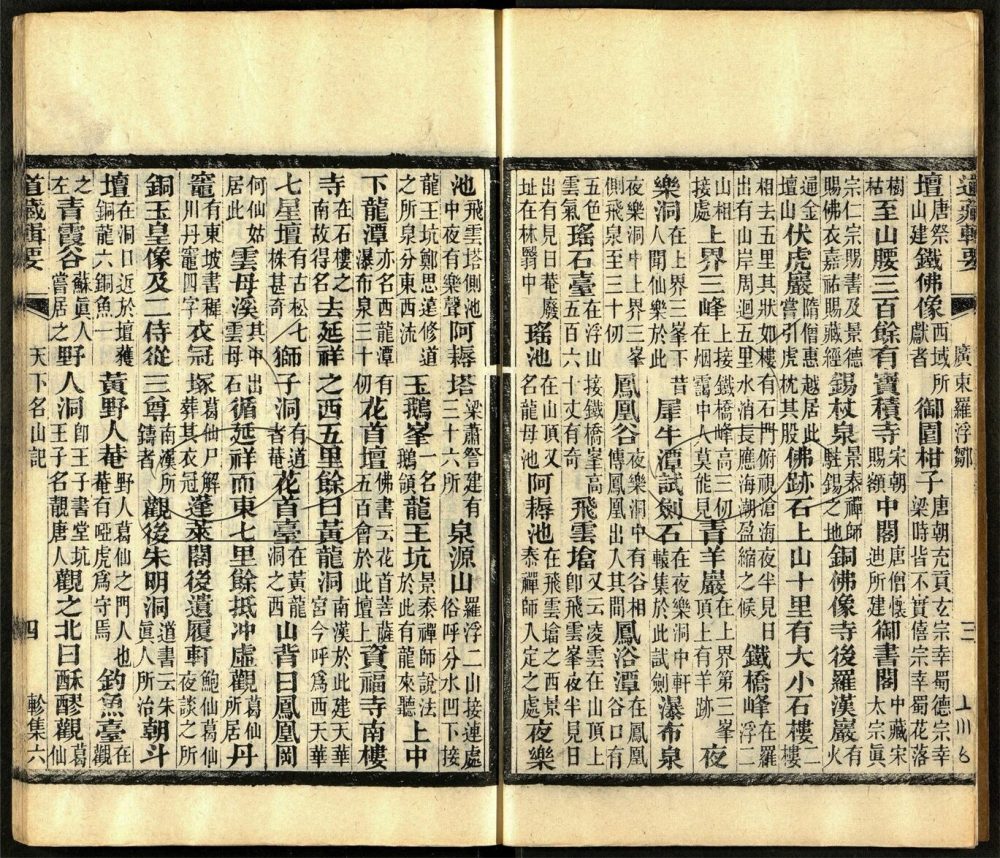 道藏輯要 廣東羅浮鄒 三
壇唐祭山建鐵佛像西域所獻者御園柑子唐朝充貢玄宗幸蜀德宗幸梁時皆不實僖宗幸蜀花落
樹枯至山腰三百餘有寶積寺宋朝賜額中閣唐僧懷迪所建御書閣中藏宋太宗眞
宗仁宗賜書及景德賜佛衣嘉祐賜藏經錫杖泉景泰禪師駐錫之地銅佛像寺後羅漢巖有火
通金壇山伏虎巖隋僧惠越居此嘗引虎枕其股佛跡石上山十里有大小石樓二樓
相去五里其狀如樓有石門俯視滄海夜半見日出有山岸周迴五里水消長應海潮盈縮之候鐵橋峰在羅浮二
山相接處上界三峰上接鐵橋峰高三仞在烟靄中人莫能見青羊巖在上界第三峯頂上有羊跡夜
樂洞在上界三峯下昔人聞仙樂於此犀牛潭試劍石在夜樂洞中軒轅集於此試劍瀑布泉
夜樂洞中上界三峯側飛泉至三十仞鳳凰谷在夜樂洞中有谷相傳鳳凰出入其間鳳浴潭在鳳凰谷口有
五色雲氣瑤石臺在浮山接鐵橋峯高五百六十丈有奇飛雲塔又云凌雲在山頂上卽飛雲峯夜半見日
出有見日菴廢址在林翳中瑤池在山頂又名龍母池阿耨池在飛雲塔之西景泰禪師入定之處夜樂
池飛雲塔側池中夜有樂聲阿耨塔梁蕭譽建有三十六所泉源山羅浮二山接連處俗呼分水凹下接
龍王坑鄭思遠修道之所泉分東西流玉鵝峯一名鵝領龍王坑景泰禪師說法於此有龍來聽上中
下龍潭亦名西龍潭有瀑布泉三十仞花首壇佛書云花首菩薩五百會於此壇上資福寺南樓
寺在石樓之南故得名去延祥之西五里餘曰黃龍洞南漢於此建天華宮今呼爲西天華
七星壇有古松七株甚奇獅子洞有道者菴花首臺在黃龍洞之西山背曰鳳凰岡
何仙姑居此雲母溪其中出雲母石循延祥而東七里餘抵沖虛觀葛仙所居丹
竈有東坡書稚川丹竈四字衣冠冢葛仙尸解葬其衣冠蓬萊閣後遺履軒鮑仙葛仙夜談之所
銅玉皇像及二侍從三尊南漢所鑄者觀後朱明洞道書云朱眞人所治朝斗
壇在洞口近於壇獲銅龍六銅魚一黃野人菴野人葛仙之門人也菴有啞虎爲守焉釣魚臺在觀
之左青霞谷蘇眞人嘗居之野人洞卽王子書堂坑王子名靚唐人觀之北曰酥醪觀葛仙
道藏輯要 天下名山記 四 軫集六